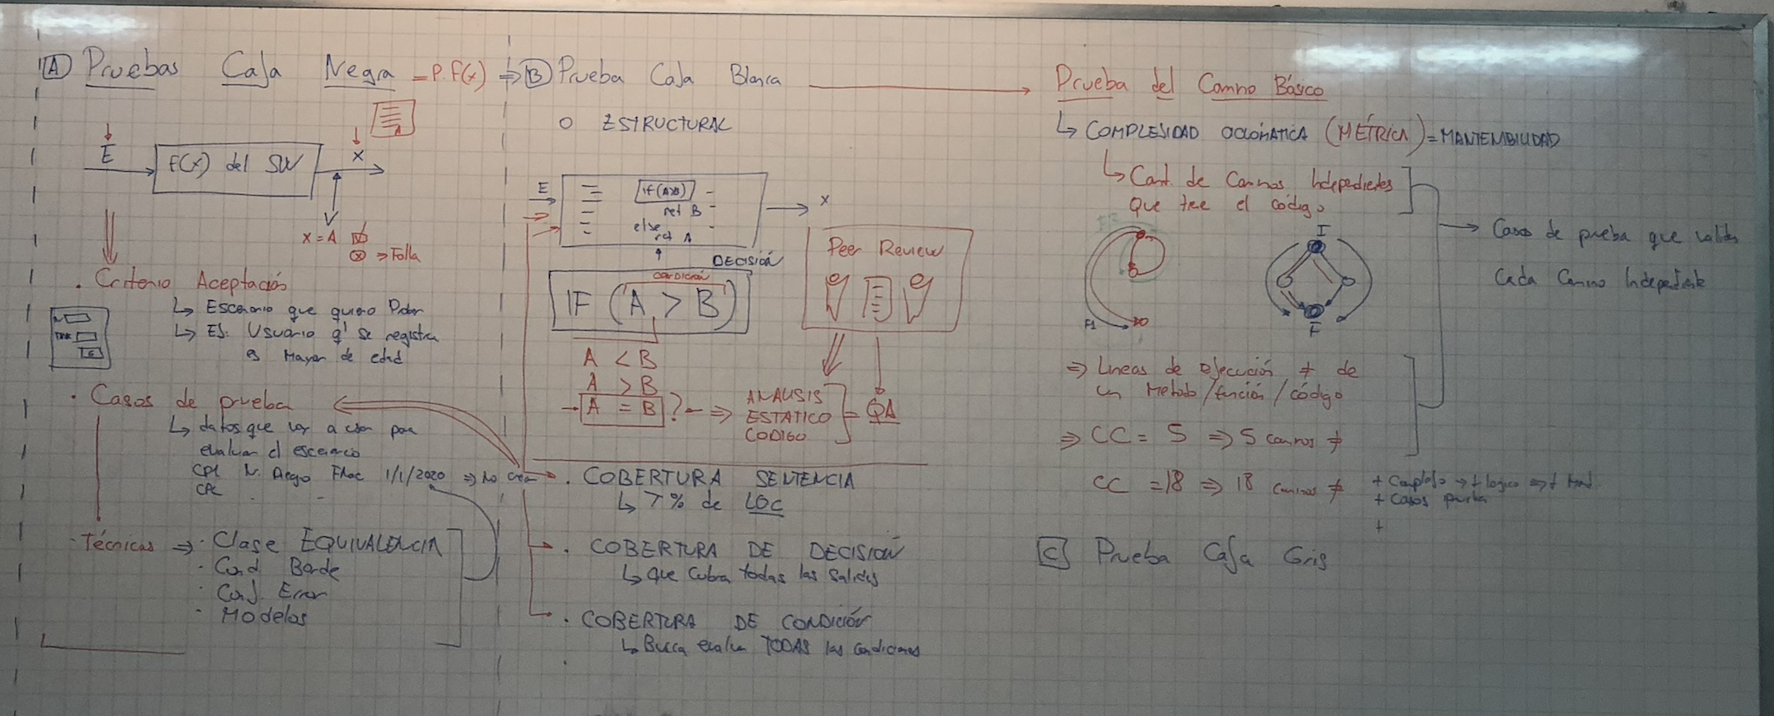 A Pruebas Caja Negra = P. F(x) ⇒
E
F(x) del SW
x
V
x = A
⊗ ⇒ Falla
· Criterio Aceptación
↳ Escenario que quiero Probar
↳ Ej. Usuario q' se registra
es Mayor de edad
· Casos de prueba
↳ datos que van a usar para
evaluar el escenario
CP1 N. Diego FNac 1/1/2020 ⇒ No crea
· Técnicas ⇒ · Clase EQUIVALENCIA
· Cond Borde
· Conj Error
· Modelos
B Prueba Caja Blanca
O ESTRUCTURAL
E
if (A>B)
ret B
else
ret A
x
DECISIÓN
CONDICIÓN
IF (A > B)
A < B
A > B
A = B ? ⇒ ANALISIS
ESTATICO
CODIGO
= QA
Peer Review
· COBERTURA SENTENCIA
↳ 7% de LOC
· COBERTURA DE DECISIÓN
↳ que cubra todas las salidas
· COBERTURA DE CONDICIÓN
↳ Busca evaluar TODAS las condiciones
Prueba del Camno Básico
↳ COMPLEJIDAD CICLOMÁTICA (MÉTRICA) = MANTENIBILIDAD
↳ Cant de Caminos Independientes
que tiene el código.
F1
I
F
→ Casos de prueba que valide
cada Camino Independiente
⇒ Líneas de ejecución ≠ de
un Metodo / función / código
⇒ CC = 5 ⇒ 5 caminos ≠
CC = 18 ⇒ 18 caminos ≠
+ Complejo → + lógica ⇒ +
+ Casos prueba
+
C Prueba Caja Gris